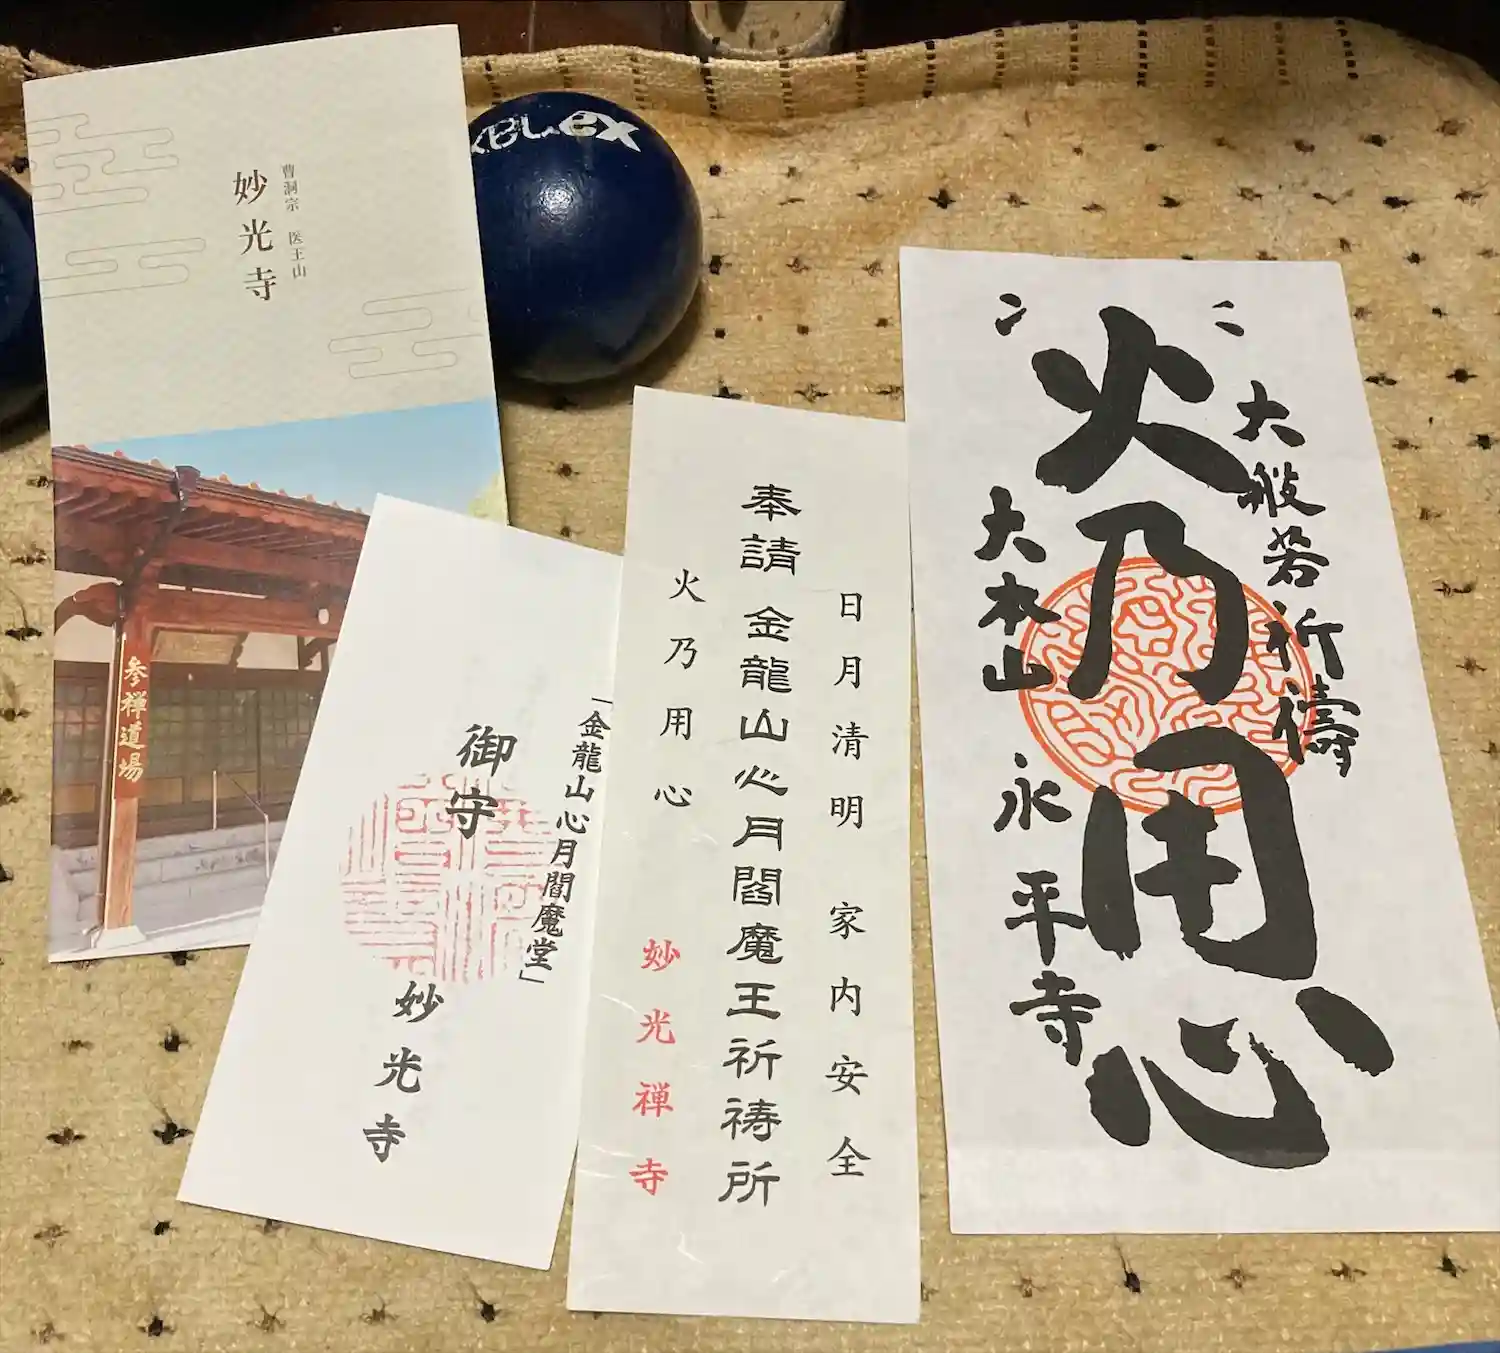 曹洞宗 医王山
妙光寺
参禅道場
「金龍山心月閻魔堂」
御守
妙光寺
日月清明 家内安全
奉請 金龍山心月閻魔王祈祷所
火乃用心
妙光禅寺
大般若祈禱
火乃用心
大本山 永平寺